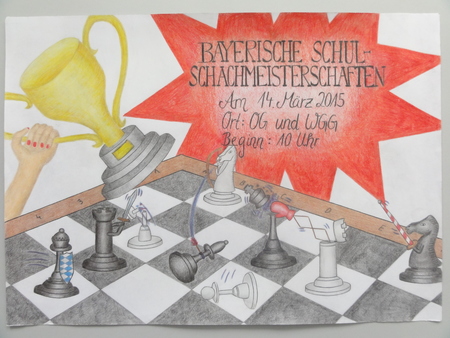 BAYERISCHE SCHUL-
SCHACHMEISTERSCHAFTEN
Am 14. März 2015
Ort: OG und WGG
Beginn: 10 Uhr